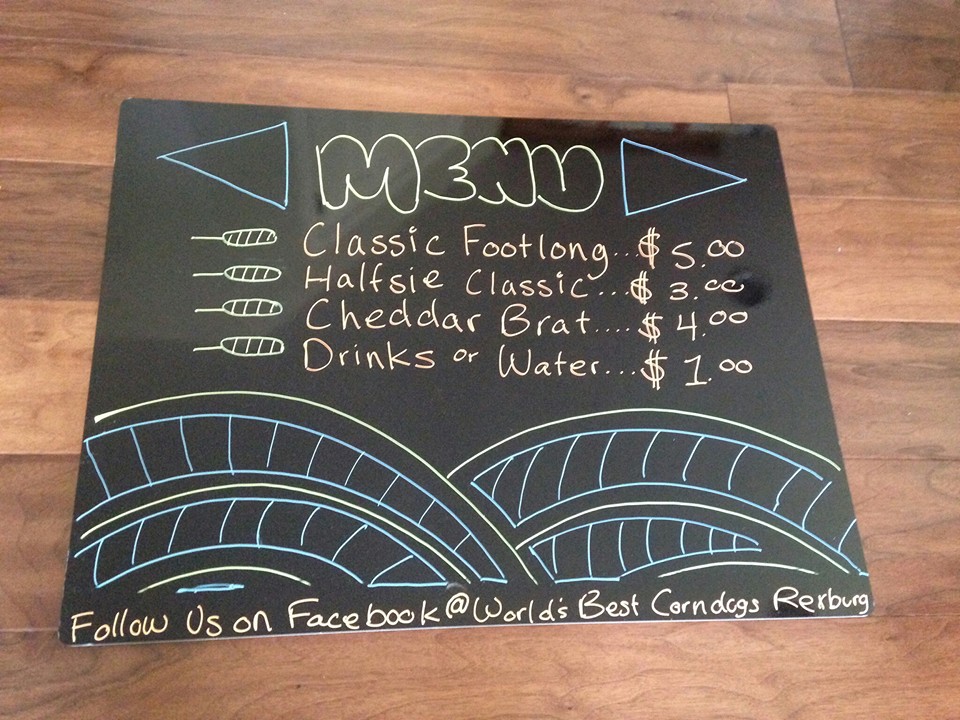 MENU
Classic Footlong...$ 5.00
Halfsie Classic...$ 3.00
Cheddar Brat....$ 4.00
Drinks or Water...$ 1.00
Follow Us on Facebook @ World's Best Corndogs Rexburg